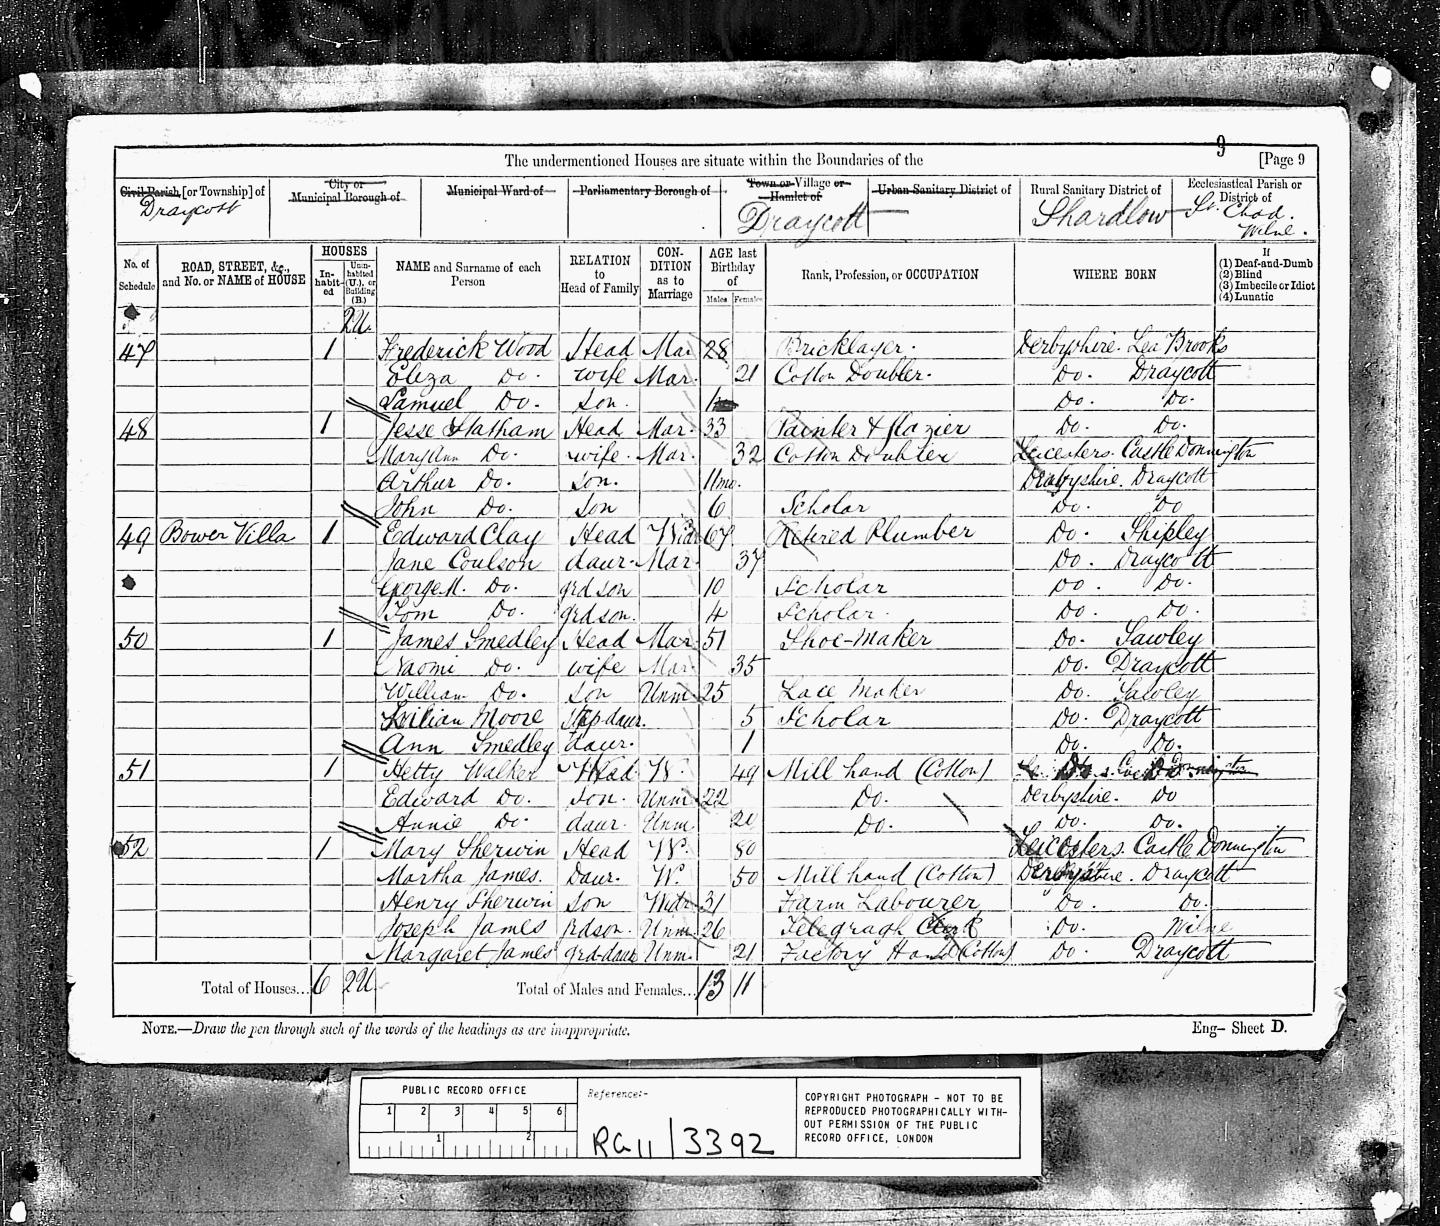 9
The undermentioned Houses are situate within the Boundaries of the [Page 9
Civil Parish [or Township] of City or Municipal Borough of Municipal Ward of Parliamentary Borough of Town or Village or Hamlet of Urban Sanitary District of Rural Sanitary District of Ecclesiastical Parish or District of
Draycott Draycott Shardlow St. Chad. Wilne.
No. of Schedule ROAD, STREET, &c., and No. or NAME of HOUSE HOUSES In-habit-ed Unin-habited (U.), or Building (B.) NAME and Surname of each Person RELATION to Head of Family CON-DITION as to Marriage AGE last Birthday of Males Females Rank, Profession, or OCCUPATION WHERE BORN If (1) Deaf-and-Dumb (2) Blind (3) Imbecile or Idiot (4) Lunatic
2U.
47 1 Frederick Wood Head Mar 28 Bricklayer. Derbyshire. Lea Brooks
Eliza Do. wife Mar. 21 Cotton Doubler. Do. Draycott
Samuel Do. Son. Do. Do.
48 1 Jesse Hatham Head Mar. 33 Painter & Glazier Do. Do.
Maryann Do. wife. Mar. 32 Cotton Doubler Leicesters. Castle Donnington
Arthur Do. Son. 11mo. Derbyshire. Draycott
John Do. Son 6 Scholar Do. Do
49 Bower Villa 1 Edward Clay Head Widr 67 Retired Plumber Do. Shipley
Jane Coulson daur. Mar. 37 Do. Draycott
George H. Do. grdson 10 Scholar Do. Do.
Tom Do. grdson. 4 Scholar. Do. Do.
50 1 James Smedley Head Mar. 51 Shoe-Maker Do. Sawley
Naomi Do. wife Mar. 35 Do. Draycott
William Do. son Unm. 25 Lace Maker Do. Sawley
Lilian Moore Step-daur. 5 Scholar Do. Draycott
Ann Smedley daur. 1 Do. Do.
51 1 Hetty Walker Head W. 49 Mill hand (Cotton) Do. Do.
Edward Do. Son. Unm. 22 Do. Derbyshire. Do
Annie Do. daur. Unm 20 Do. Do. Do.
52 1 Mary Sherwin Head W. 80 Leicesters. Castle Donnington
Martha James. Daur. W. 50 Mill hand (Cotton) Derbyshire. Draycott
Henry Sherwin Son Widr 31 Farm Labourer Do. Do.
Joseph James grdson. Unm. 26 Telegraph Clerk Do. Wilne
Margaret James grd-daur Unm. 21 Factory Hand (Cotton) Do. Draycott
Total of Houses... 6 2U. Total of Males and Females... 13 11
NOTE.—Draw the pen through such of the words of the headings as are inappropriate. Eng— Sheet D.
PUBLIC RECORD OFFICE
1 2 3 4 5 6
1 2
Reference:-
RG11/3392
COPYRIGHT PHOTOGRAPH - NOT TO BE
REPRODUCED PHOTOGRAPHICALLY WITH-
OUT PERMISSION OF THE PUBLIC
RECORD OFFICE, LONDON